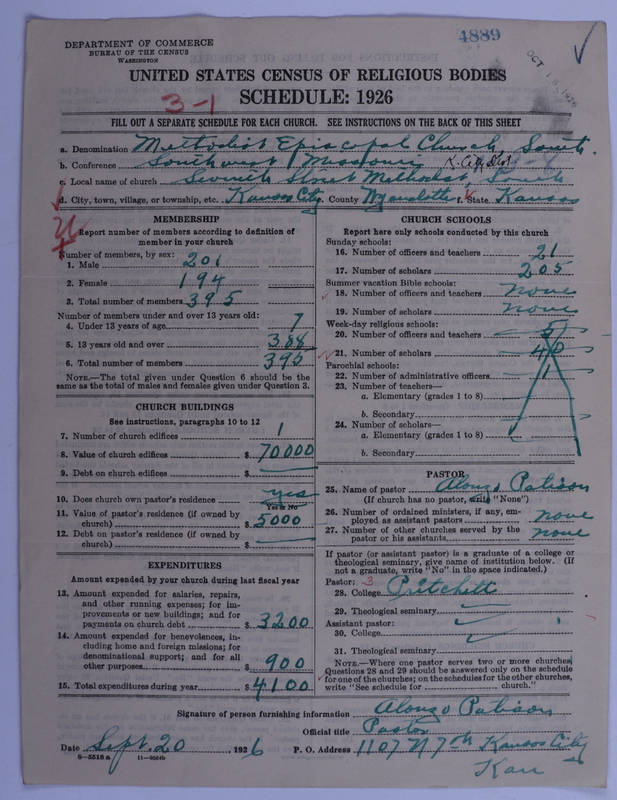 4889
OCT 18 1926
DEPARTMENT OF COMMERCE
BUREAU OF THE CENSUS
WASHINGTON
UNITED STATES CENSUS OF RELIGIOUS BODIES
SCHEDULE: 1926
3-1
FILL OUT A SEPARATE SCHEDULE FOR EACH CHURCH. SEE INSTRUCTIONS ON THE BACK OF THIS SHEET
a. Denomination Methodist Episcopal Church, South.
b. Conference Southwest Missouri K. City Dist
c. Local name of church Seventh Street Methodist, South
d. City, town, village, or township, etc. Kansas City e. County Wyandotte f. State Kansas
MEMBERSHIP
Report number of members according to definition of
member in your church
Number of members, by sex:
1. Male 201
2. Female 194
3. Total number of members 395
Number of members under and over 13 years old:
4. Under 13 years of age 7
5. 13 years old and over 388
6. Total number of members 395
NOTE.—The total given under Question 6 should be the
same as the total of males and females given under Question 3.
CHURCH BUILDINGS
See instructions, paragraphs 10 to 12
7. Number of church edifices 1
8. Value of church edifices $ 70000
9. Debt on church edifices $
10. Does church own pastor's residence yes
Yes or No
11. Value of pastor's residence (if owned by
church) $ 5000
12. Debt on pastor's residence (if owned by
church) $
EXPENDITURES
Amount expended by your church during last fiscal year
13. Amount expended for salaries, repairs,
and other running expenses; for im-
provements or new buildings; and for
payments on church debt $ 3200
14. Amount expended for benevolences, in-
cluding home and foreign missions; for
denominational support; and for all
other purposes $ 900
15. Total expenditures during year $ 4100
CHURCH SCHOOLS
Report here only schools conducted by this church
Sunday schools:
16. Number of officers and teachers 21
17. Number of scholars 205
Summer vacation Bible schools:
18. Number of officers and teachers none
19. Number of scholars none
Week-day religious schools:
20. Number of officers and teachers 5
21. Number of scholars 40
Parochial schools:
22. Number of administrative officers 1
23. Number of teachers—
a. Elementary (grades 1 to 8)
b. Secondary
24. Number of scholars—
a. Elementary (grades 1 to 8)
b. Secondary
PASTOR
25. Name of pastor Alonzo Patison
(If church has no pastor, write "None")
26. Number of ordained ministers, if any, em-
ployed as assistant pastors none
27. Number of other churches served by the
pastor or his assistants none
If pastor (or assistant pastor) is a graduate of a college or
theological seminary, give name of institution below. (If
not a graduate, write "No" in the space indicated.)
Pastor: 3
28. College Pritchett
29. Theological seminary
Assistant pastor:
30. College
31. Theological seminary
NOTE.—Where one pastor serves two or more churches,
Questions 28 and 29 should be answered only on the schedule
for one of the churches; on the schedules for the other churches,
write "See schedule for church."
Signature of person furnishing information Alonzo Patison
Official title Pastor
Date Sept. 20, 1926 P. O. Address 1107 N 7th Kansas City
Kan
8-5518a 11-9054b